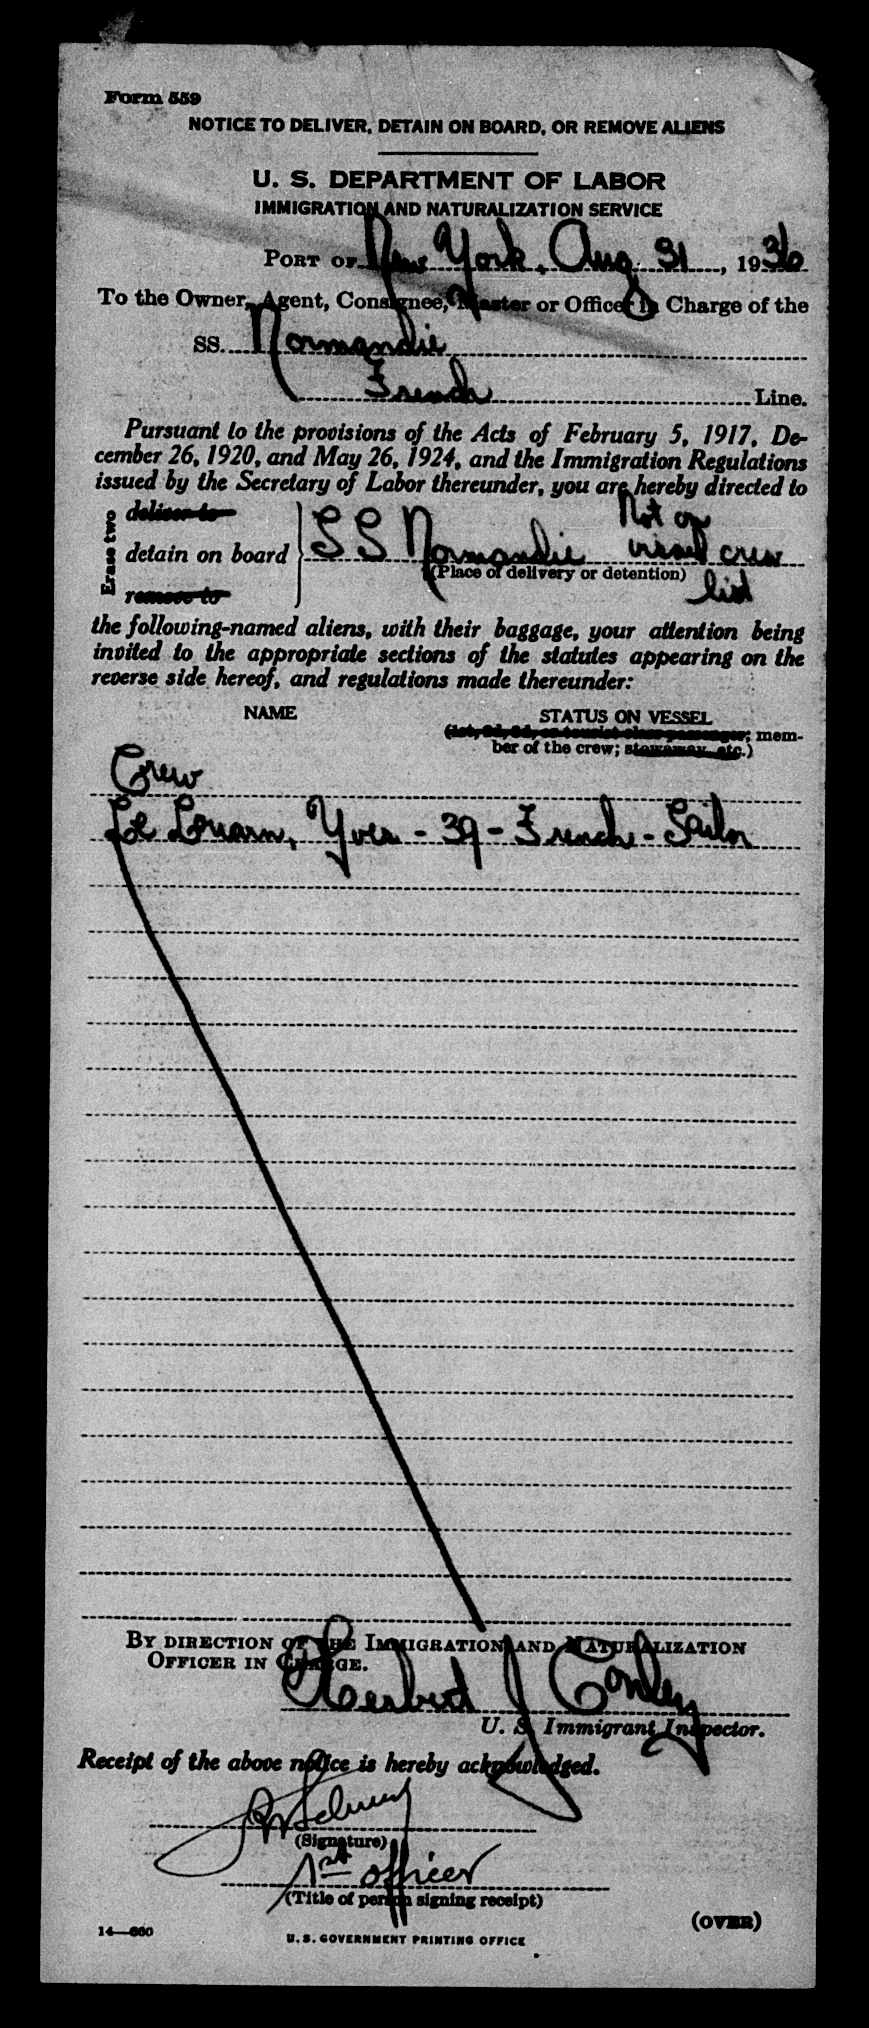 Form 559
NOTICE TO DELIVER, DETAIN ON BOARD, OR REMOVE ALIENS
U. S. DEPARTMENT OF LABOR
IMMIGRATION AND NATURALIZATION SERVICE
PORT OF New York, Aug 31, 1936
To the Owner, Agent, Consignee, Master or Officer in Charge of the
SS. Normandie
French Line.
Pursuant to the provisions of the Acts of February 5, 1917, De-
cember 26, 1920, and May 26, 1924, and the Immigration Regulations
issued by the Secretary of Labor thereunder, you are hereby directed to
Erase two
deliver to
detain on board
remove to
SS Normandie
Not on
visaed crew
list
(Place of delivery or detention)
the following-named aliens, with their baggage, your attention being
invited to the appropriate sections of the statutes appearing on the
reverse side hereof, and regulations made thereunder:
NAME STATUS ON VESSEL
(1st, 2d, 3d, or tourist class passenger; mem-
ber of the crew; stowaway, etc.)
Crew
Le Louarn, Yves - 39 - French - Sailor
BY DIRECTION OF THE IMMIGRATION AND NATURALIZATION
OFFICER IN CHARGE.
Herbert J Conley
U. S. Immigrant Inspector.
Receipt of the above notice is hereby acknowledged.
(Signature)
1st officer
(Title of person signing receipt)
(OVER)
14—860
U. S. GOVERNMENT PRINTING OFFICE